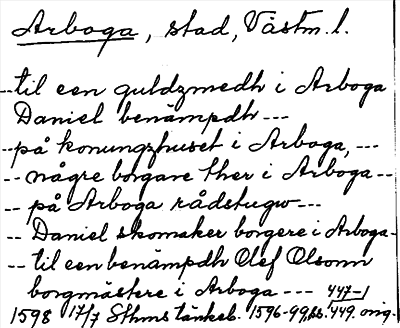 Arboga, stad, Västm. l.
-- til een guldzmedh i Arboga
Daniel benämpdh ---
-- på konungzhuset i Arboga, ---
-- någre borgare ther i Arboga --
-- på Arboga rådstugw ---
-- Daniel skomaker borgere i Arboga -
-- til een benämpdh Olef Olsonn
borgmästere i Arboga --- 447-1
1598 17/7 Sthms tänkeb. 1596-99, s. 449. orig.